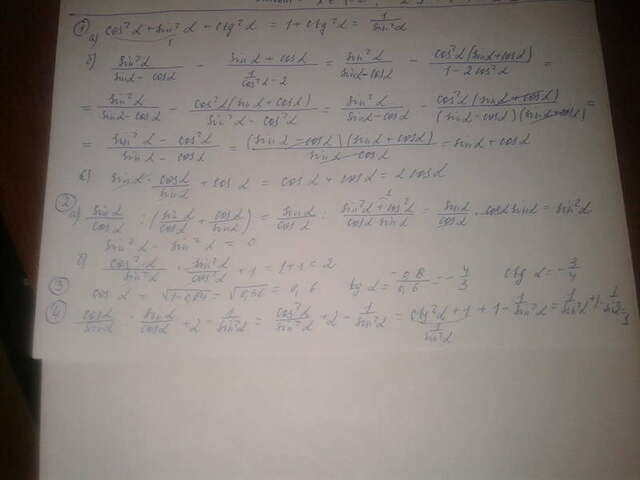 ① a) cos²α + sin²α + ctg²α = 1 + ctg²α = 1/sin²α
б) sin²α/(sinα - cosα) - (sinα + cosα)/(1/cos²α - 2) = sin²α/(sinα - cosα) - cos²α(sinα + cosα)/(1 - 2cos²α) =
= sin²α/(sinα - cosα) - cos²α(sinα + cosα)/(sin²α - cos²α) = sin²α/(sinα - cosα) - cos²α(sinα + cosα)/((sinα - cosα)(sinα + cosα)) =
= (sin²α - cos²α)/(sinα - cosα) = (sinα - cosα)(sinα + cosα)/(sinα - cosα) = sinα + cosα
в) sinα · cosα/sinα + cosα = cosα + cosα = 2cosα
② a) sinα/cosα : (sinα/cosα + cosα/sinα) = sinα/cosα : (sin²α + cos²α)/(cosα sinα) = sinα/cosα · cosα sinα = sin²α
sin²α - sin²α = 0
б) cos²α/sin²α · sin²α/cos²α + 1 = 1 + 1 = 2
③ cosα = = 0,6 tgα = = - 4/3 ctgα = - 3/4
④ cosα/sinα · sinα/cosα + 2 - 1/sin²α = cos²α/sin²α + 2 - 1/sin²α = ctg²α + 1 + 1 - 1/sin²α = 1/sin²α